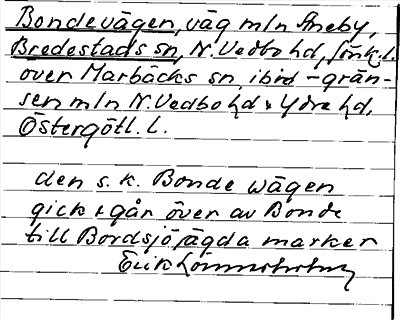 Bondevägen, väg mln Aneby,
Bredestads sn, N. Vedbo hd, Jönk. l.
över Marbäcks sn, ibid – grän-
sen mln N. Vedbo hd & Ydre hd,
Östergötl. l.
den s. k. Bonde wägen
gick & går över av Bonde
till Bordsjö ägda marker
Erik